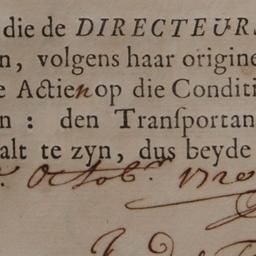 die de DIRECTEUR
n, volgens haar origine
e Actien op die Conditi
n : den Tranſportan
alt te zyn, dus beyde
Octobr. 1720